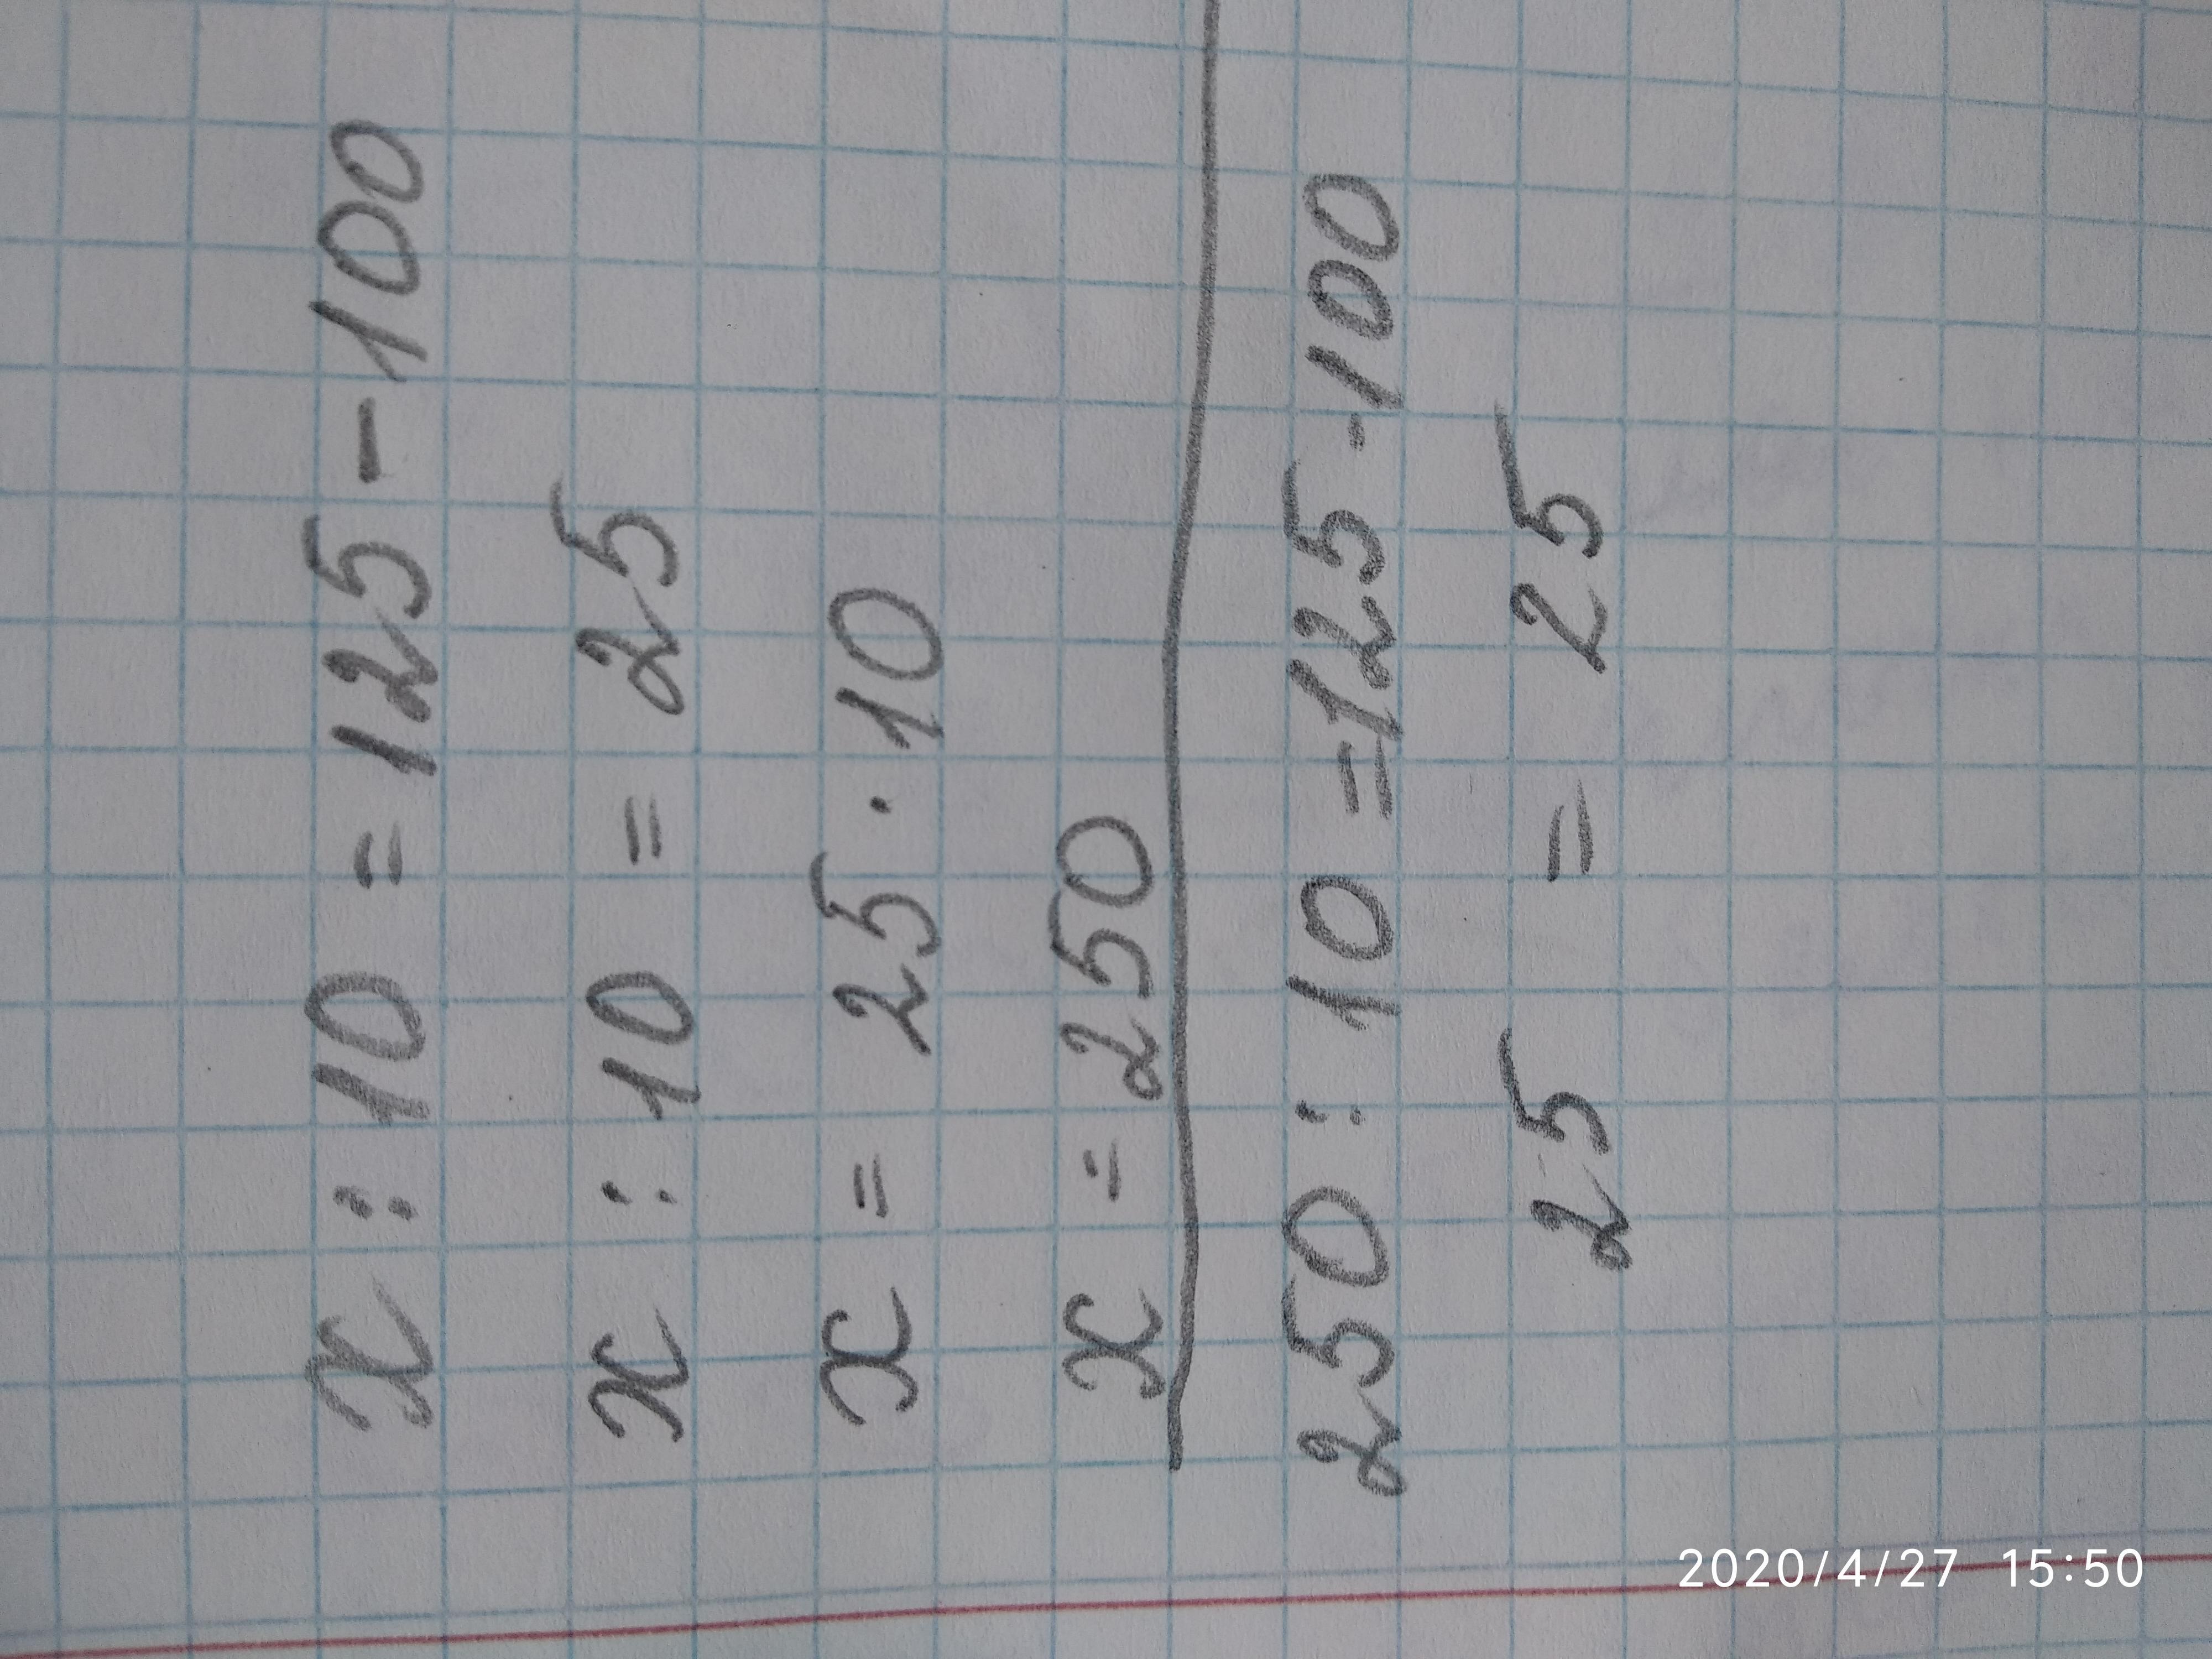 x : 10 = 125 - 100
x : 10 = 25
x = 25 · 10
x = 250
250 : 10 = 125 - 100
25 = 25
2020/4/27 15:50